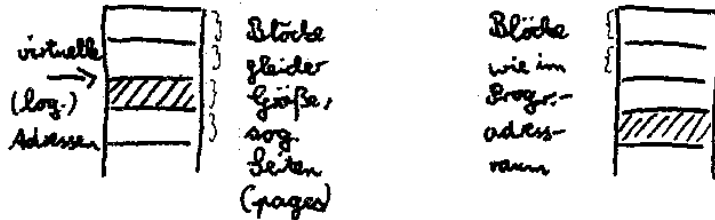 virtuelle
(log.)
Adressen
Blöcke
gleicher
Größe,
sog.
Seiten
(pages)
Blöcke
wie im
Progr.-
adress-
raum